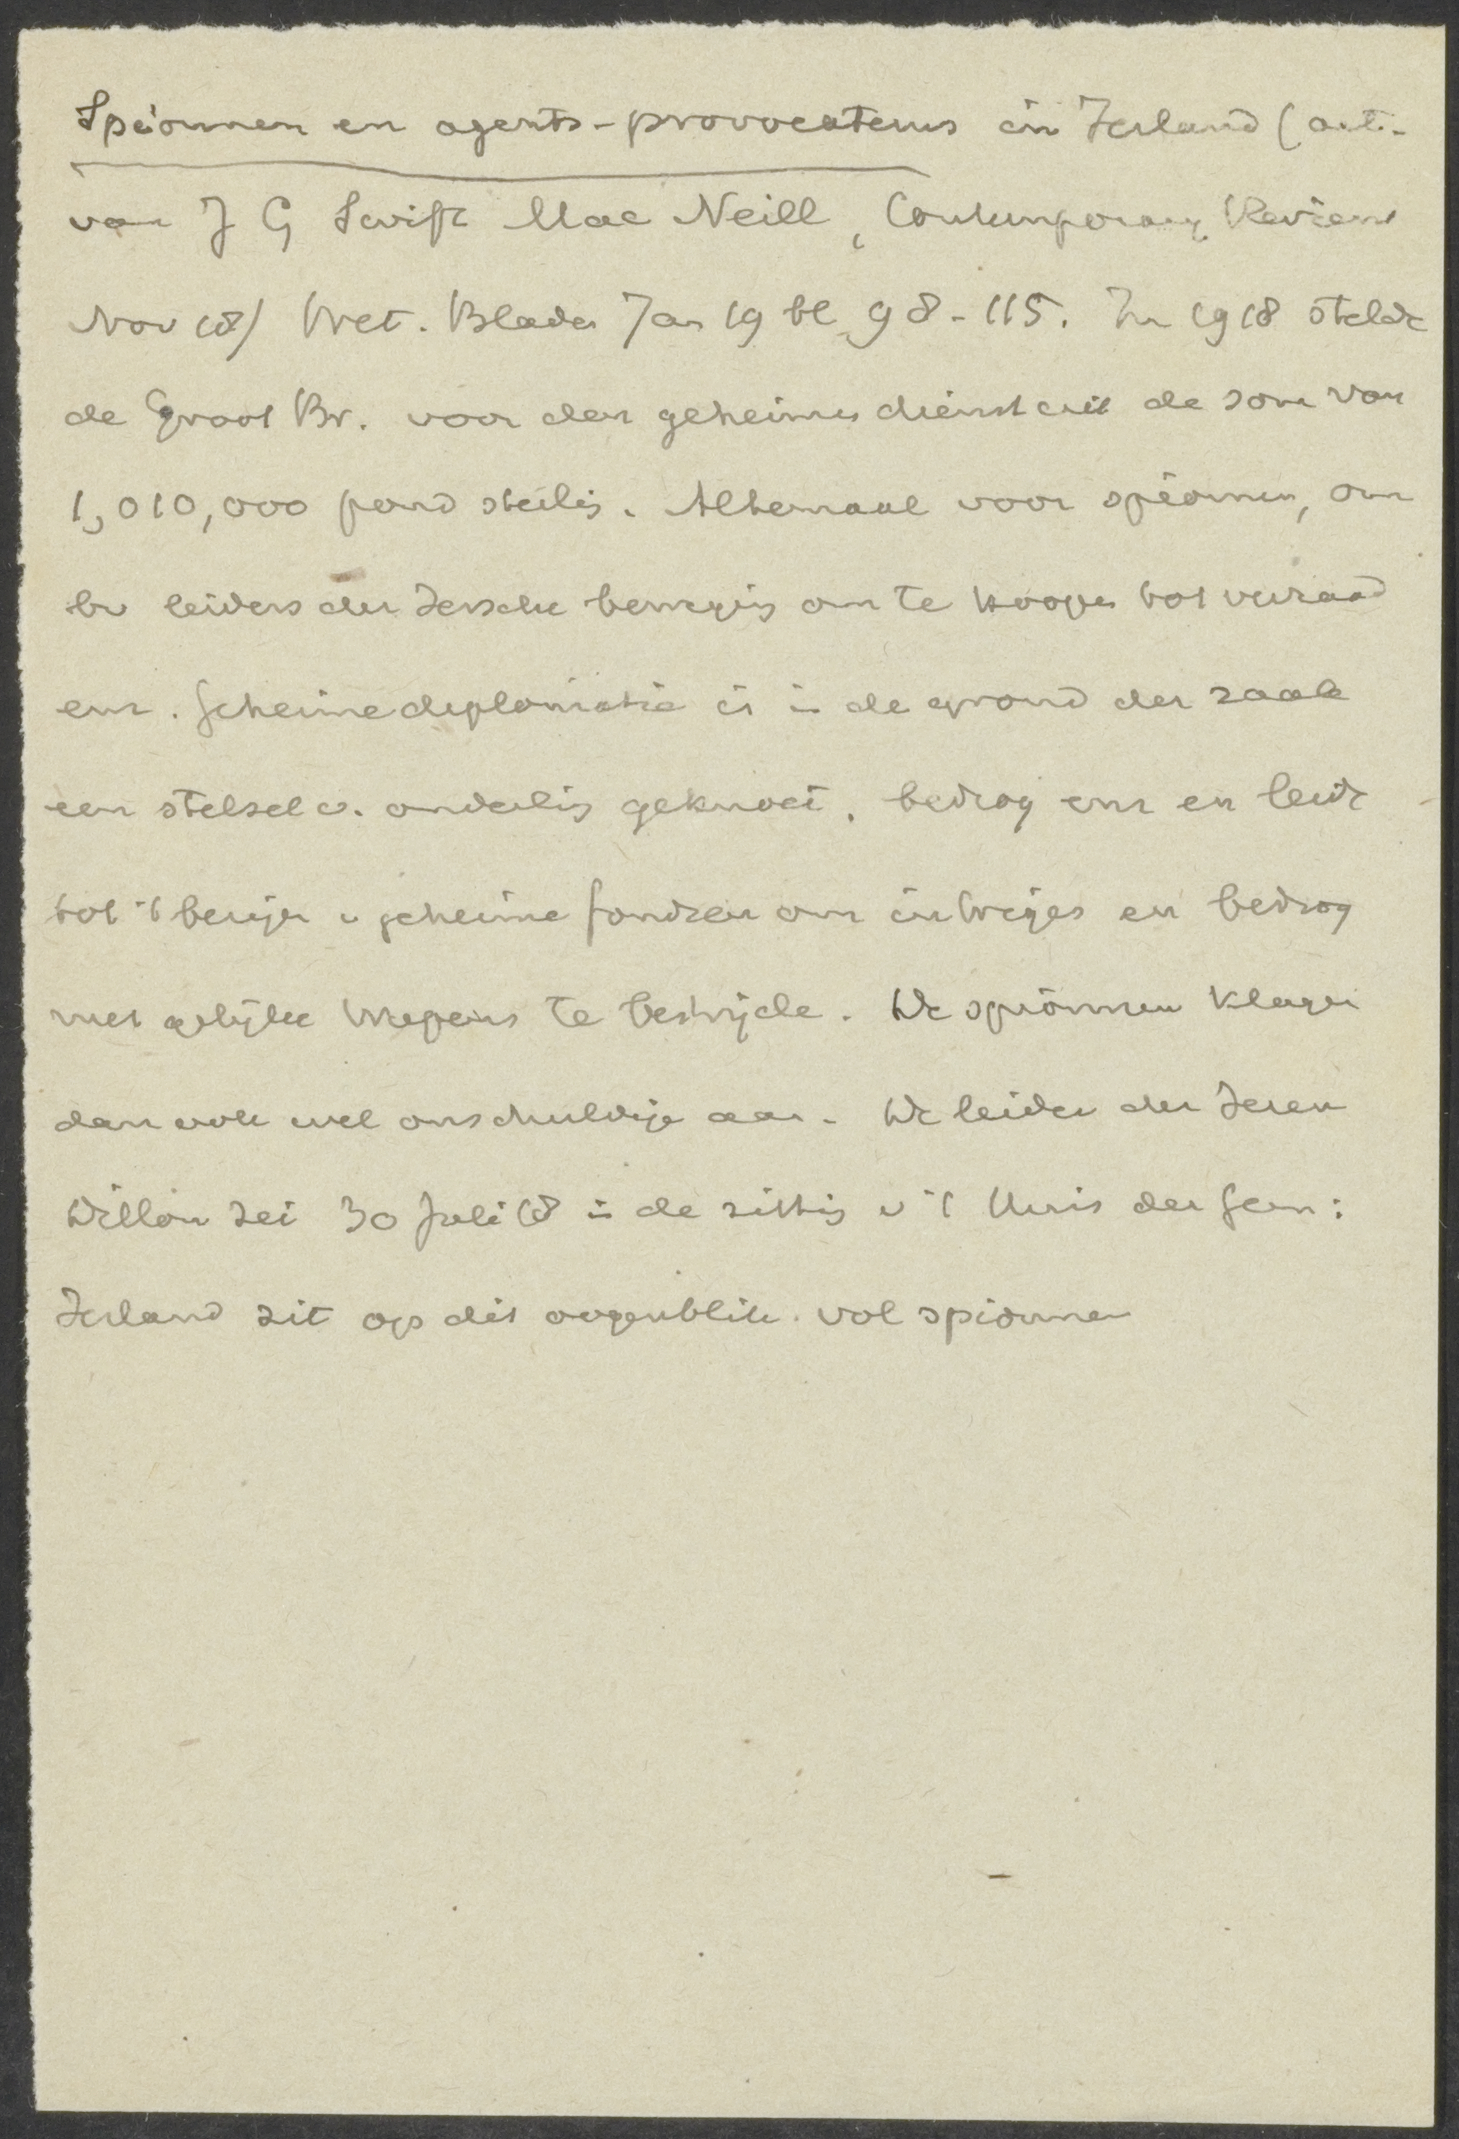 Spionnen en agents-provocateurs in Ierland (art.
van J G Swift Mac Neill, Contemporary Review
Nov 18) Wet. Bladen Jan 19 bl 98-115. In 1918 stelde
de Groot Br. voor den geheimen dienst uit de som van
1,010,000 pond sterling. Altemaal voor spionnen, om
bv leiders der Iersche beweging om te koopen tot verraad
enz. Geheime diplomatie is in de grond der zaak
een stelsel v. onderling geknoei, bedrog enz en leidt
tot 't bezigen v geheime fondsen om intriges en bedrog
met gelijke wapens te bestrijden. De spionnen klagen
dan ook wel onschuldige aan. De leider der Ieren
Dillon zei 30 Juli 18 in de zitting v 't Huis der Gem:
Ierland zit op dit oogenblik vol spionnen